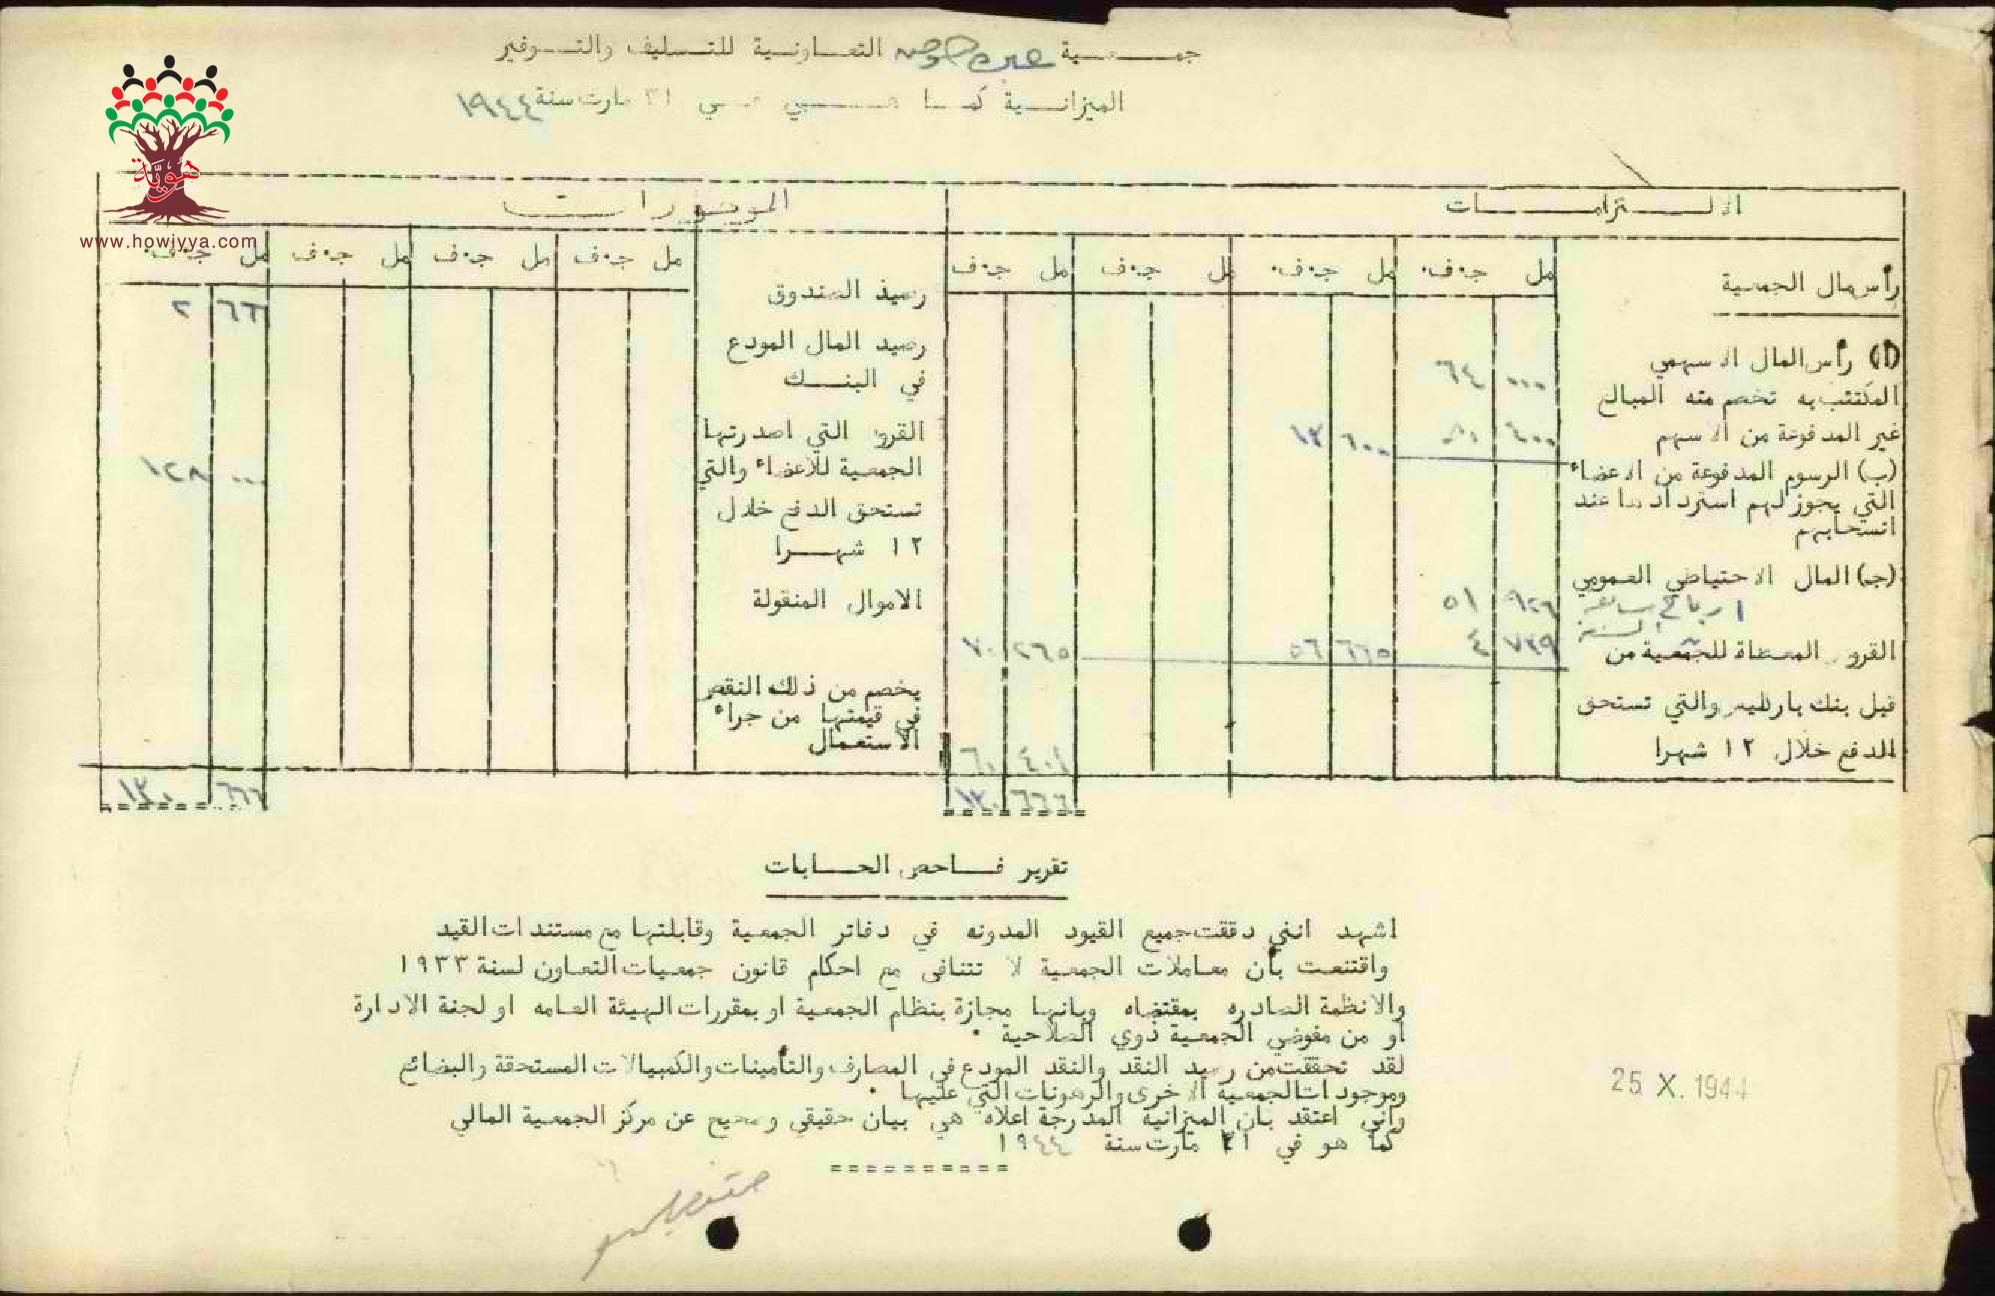 جمعية عين حوض التعاونية للتسليف والتوفير
الميزانية كما هي في ٣١ مارت سنة ١٩٤٤
هَوِيَّة
www.howiyya.com
الالتزامات
مل ج.ف. مل ج.ف. مل ج.ف مل ج.ف
رأس مال الجمعية
(ا) رأس المال الاسهمي
٦٤ ٠٠٠
المكتتب به تخصم منه المبالغ
غير المدفوعة من الاسهم
٤٠٠
١٣ ٦٠٠
(ب) الرسوم المدفوعة من الاعضاء
التي يجوز لهم استردادها عند
انسحابهم
(ج) المال الاحتياطي العمومي
٥١ ٩٢٦
ارباح سابقة
السنة
٤ ٧٣٩
٥٦ ٦٦٥
٧٠ ٢٦٥
القروض المعطاة للجمعية من
قبل بنك باركليس والتي تستحق
الدفع خلال ١٢ شهرا
٦٠ ٤٠١
١٣٠ ٦٦٦
الموجودات
مل ج.ف مل ج.ف مل ج.ف مل ج.ف.
رصيد الصندوق
٢ ٦٦٦
رصيد المال المودع
في البنك
القروض التي اصدرتها
الجمعية للاعضاء والتي
١٢٨ ٠٠٠
تستحق الدفع خلال
١٢ شهرا
الاموال المنقولة
يخصم من ذلك النقص
في قيمتها من جراء
الاستعمال
١٣٠ ٦٦٦
تقرير فاحص الحسابات
اشهد انني دققت جميع القيود المدونه في دفاتر الجمعية وقابلتها مع مستندات القيد
واقتنعت بأن معاملات الجمعية لا تتنافى مع احكام قانون جمعيات التعاون لسنة ١٩٣٣
والانظمة الصادره بمقتضاه وبانها مجازة بنظام الجمعية او بمقررات الهيئة العامه او لجنة الادارة
او من مفوضي الجمعية ذوي الصلاحية .
لقد تحققت من رصيد النقد والنقد المودع في المصارف والتأمينات والكمبيالات المستحقة والبضائع
وموجودات الجمعية الاخرى والرهونات التي عليها .
واني اعتقد بان الميزانية المدرجة اعلاه هي بيان حقيقي وصحيح عن مركز الجمعية المالي
كما هو في ٣١ مارت سنة ١٩٤٤
25 X. 1944